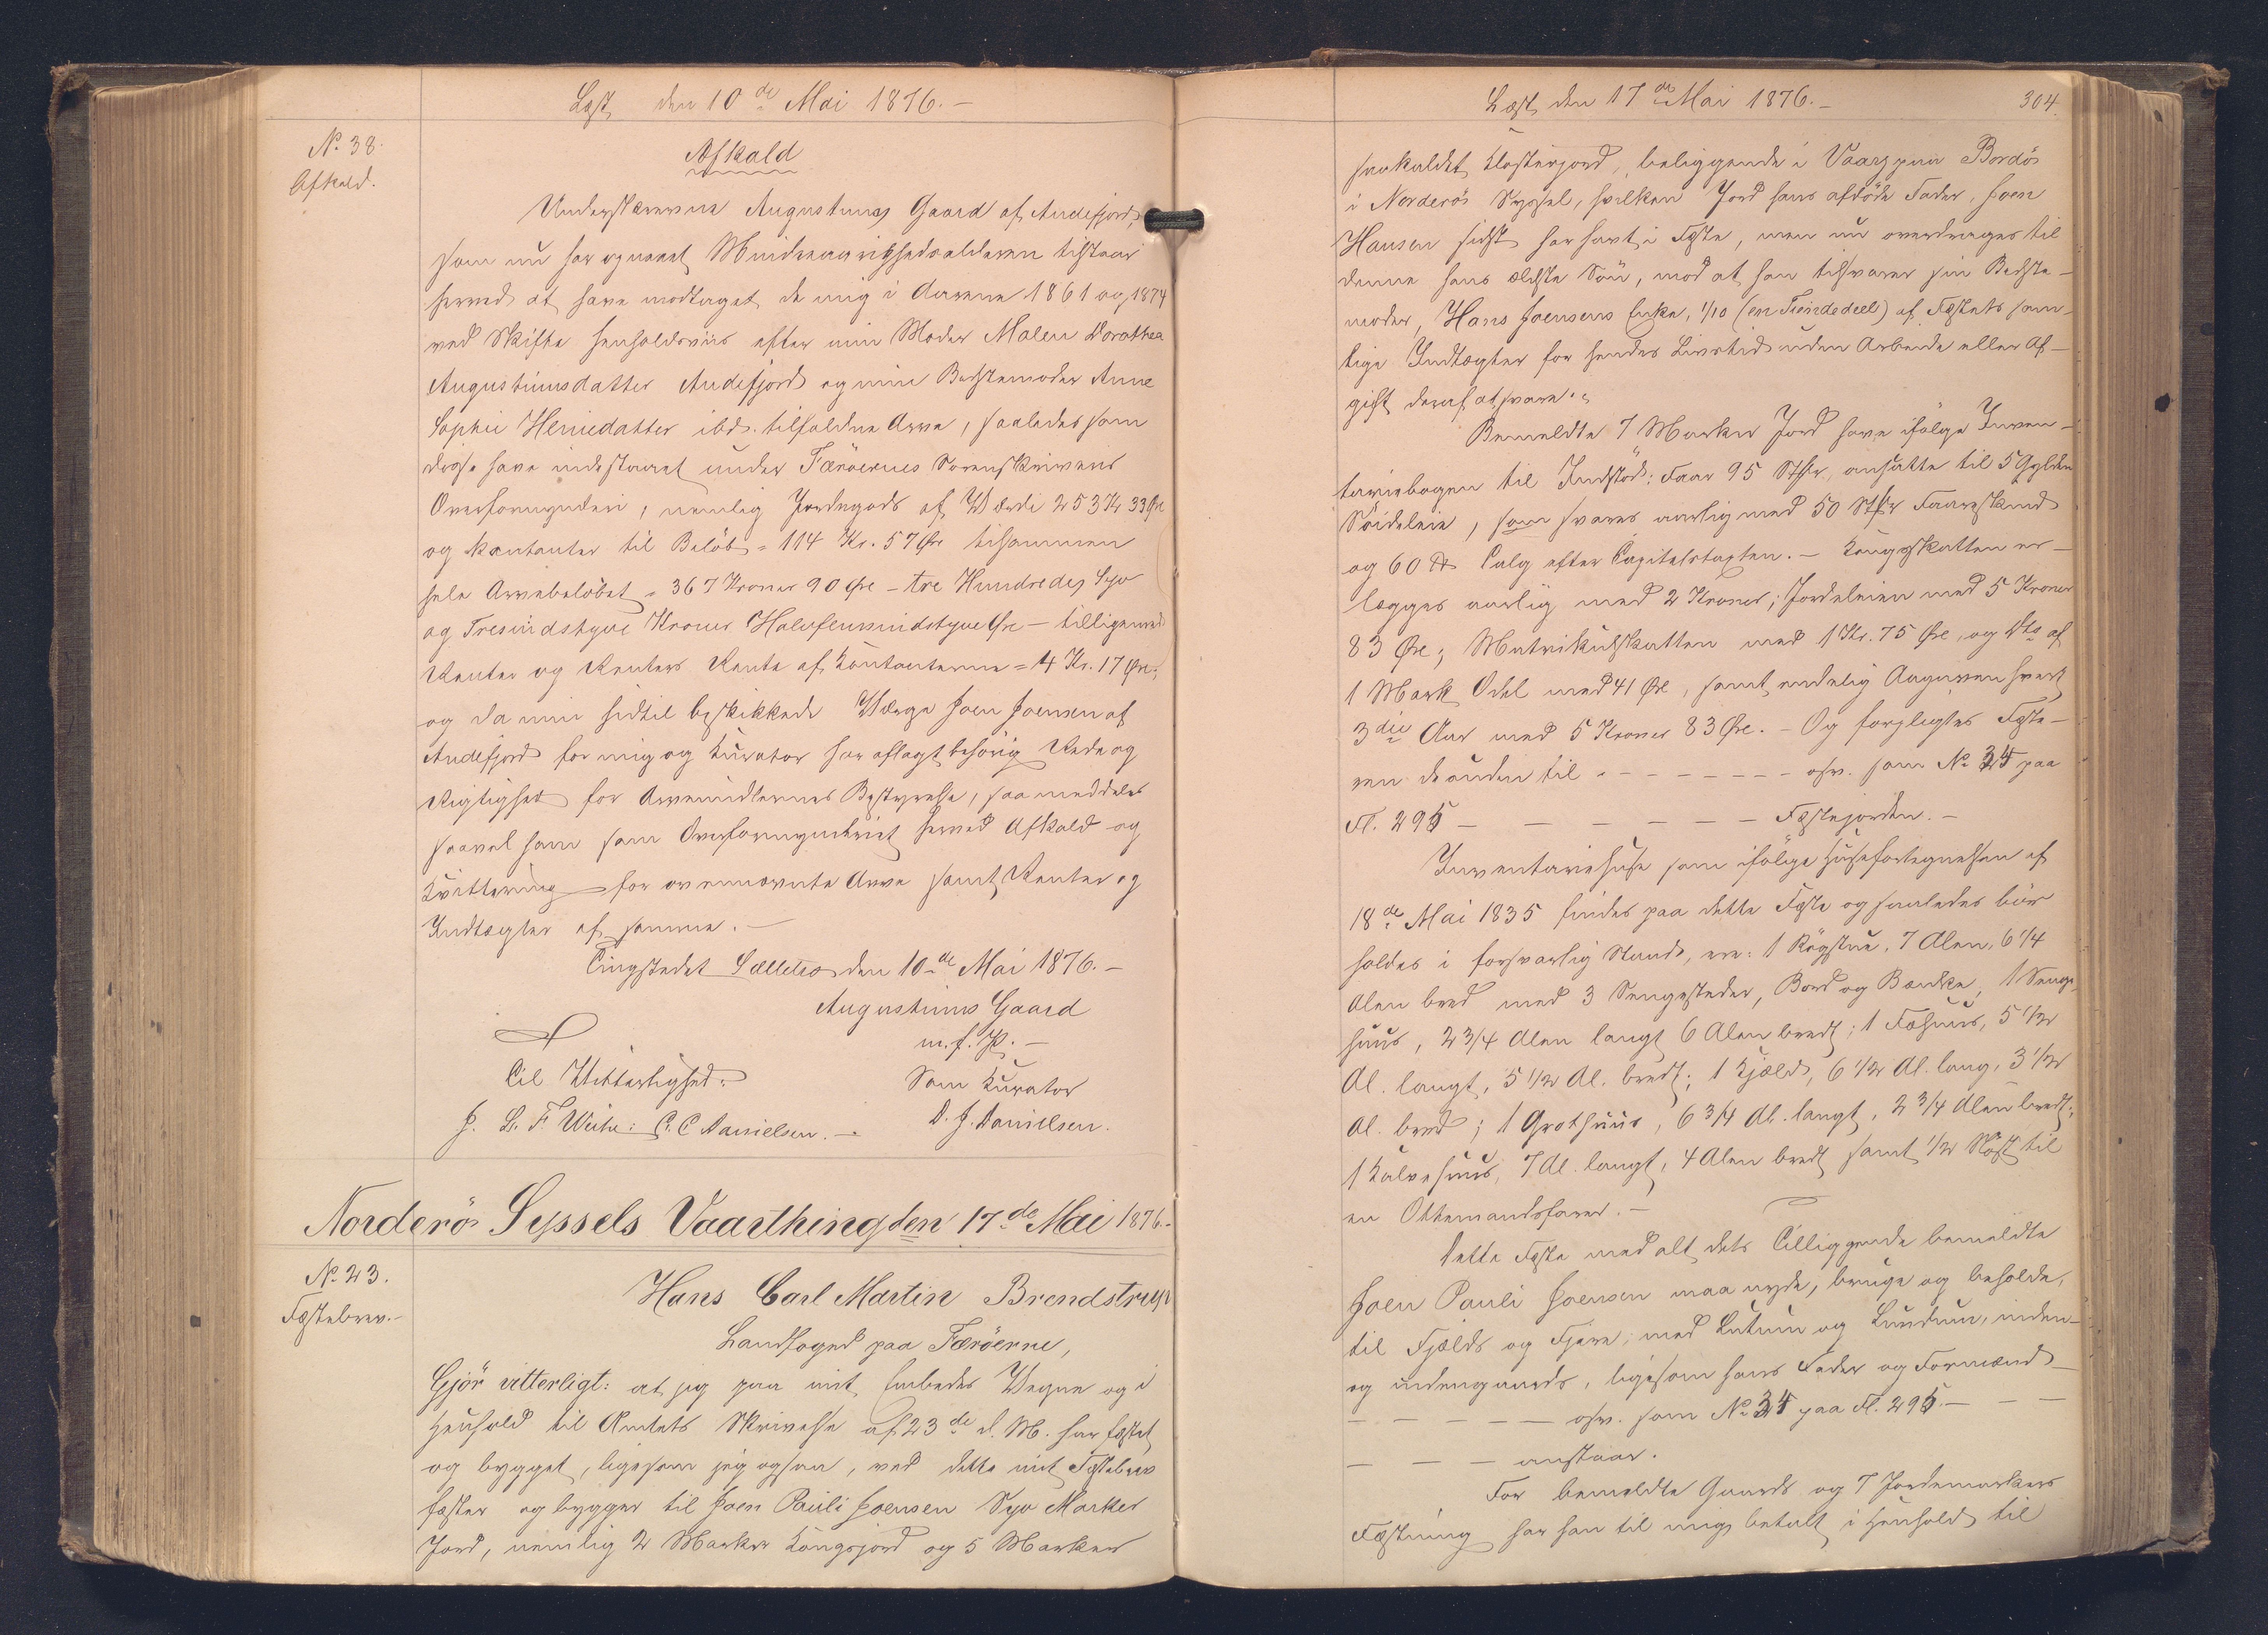 Læst den 10de Mai 1876.-
No 38.
Afkald.
Afkald
Underskrevne Augustinus Gaard af Andefjord,
som nu har opnaaet Mindreaarighedsalderen tilstaar
herved at have modtaget de mig i Aarene 1861 og 1874
ved Skifte henholdsviis efter min Moder Malen Dorothea
Augustinusdatter Andefjord og min Bedstemoder Anne
Sophie Heniedatter ibd. tilfaldne Arve, saaledes som
disse have indestaaet under Færöernes Sorenskrivers
Overformynderi, nemlig Jordegods af Værdi 253 Kr 33 Øre
og Kontanter til Beløb = 114 Kr. 57 Øre tilsammen
hele Arvebeløbet = 367 Kroner 90 Øre - tre Hundrede Syv
og Tresindstyve Kroner Halvfemsindstyve Øre - tilligemed
Renter og Renters Rente af Kontanterne = 4 Kr. 17 Øre;
og da min hidtil beskikkede Værge Joen Joensen af
Andefjord for mig og Kurator har aflagt behörig Rede og
Rigtighed for Arvemidlernes Bestyrelse, saa meddeles
saavel ham som Overformynderiet herved Afkald og
Kvittering for ovennævnte Arve samt Renter og
Indtægter af samme.-
Tingstedet Selletræ den 10de Mai 1876.-
Augustinus Gaard
m. f. P.-
Til Vitterlighed:
Som Kurator
J. L. F Weihe: P. C Danielsen.-
D. J. Danielsen.
Norderö Syssels Vaarthing den 17de Mai 1876.-
No 23.
Fæstebrev.-
Hans Carl Martin Brendstrup
Landfoged paa Færöerne,
Gjör vitterligt: at jeg paa mit Embedes Vegne og i
Henhold til Amtets Skrivelse af 23de d. M. har fæstet
og bygget, ligesom jeg ogsaa, ved dette mit Fæstebrev
fæster og bygger til Joen Pauli Joensen Syv Marker
Jord, nemlig 2 Marker Kongsjord og 5 Marker
Læst den 17de Mai 1876.-
304
saakaldet Klosterjord, beliggende i Vaag paa Bordö
i Norderö Syssel, hvilken Jord hans afdöde Fader, Joen
Hansen sidst har havt i Fæste, men nu overdrages til
denne hans ældste Sön, mod at han tilsvarer sin Bedste-
moder, Hans Joensens Enke, 1/10 (en Tiendedeel) af Fæstets sam-
tlige Indtægter for hendes Livstid uden Arbeide eller Af-
gift deraf at svare.
Bemeldte 7 Marker Jord have ifölge Inven-
tariebogen til Indstöd: Faar 95 Stkr, ansatte til 5 Gylden
Söideleie, som svares aarlig med 50 Stkr Faareskind
og 60 ℔ Talg efter Capitelstaxten.- Kongsskatten er-
lægges aarlig med 2 Kroner; Jordeleien med 5 Kroner
83 Øre; Matrikulskatten med 1 Kr. 75 Øre, og Dto af
1 Mark Odel med 41 Øre, samt endelig Aagiven hvert
3die Aar med 5 Kroner 83 Øre.- Og forpligtes Fæste-
ren desuden til - - - - - - - - osv. som No 24 paa
Fl. 295 - - - - - - - Fæstejorden.-
Inventariehuse som ifölge Husefortegnelsen af
18de Mai 1835 findes paa dette Fæste og saaledes bör
holdes i forsvarlig Stand, ere: 1 Rögstue, 7 Alen, 6 1/4
Alen bred med 3 Sengesteder, Bord og Bænke, 1 Senge-
huus, 2 3/4 Alen langt 6 Alen bredt; 1 Fæhuus, 5 1/2
Al. langt, 5 1/2 Al. bredt; 1 Hjald, 6 1/2 Al. lang, 3 1/2
Al. bred; 1 Grothuus, 6 3/4 Al. langt, 2 3/4 Alen bredt;
1 Kalvehuus, 7 Al. langt, 4 Alen bredt samt 1/2 Nöst til
en Ottemandsfarer.-
Dette Fæste med alt dets Tilliggende bemeldte
Joen Pauli Joensen maa nyde, bruge og beholde,
til Fjelds og Fjære, med Lutum og Lundum, inden-
og udengaards, ligesom hans Fader og Formænd
- - - - - osv. som No 24 paa Fl. 295.- - -
- - - anstaar.
For bemeldte Gaards og 7 Jordemarkers
Fæstning har han til mig betalt i Henhold til